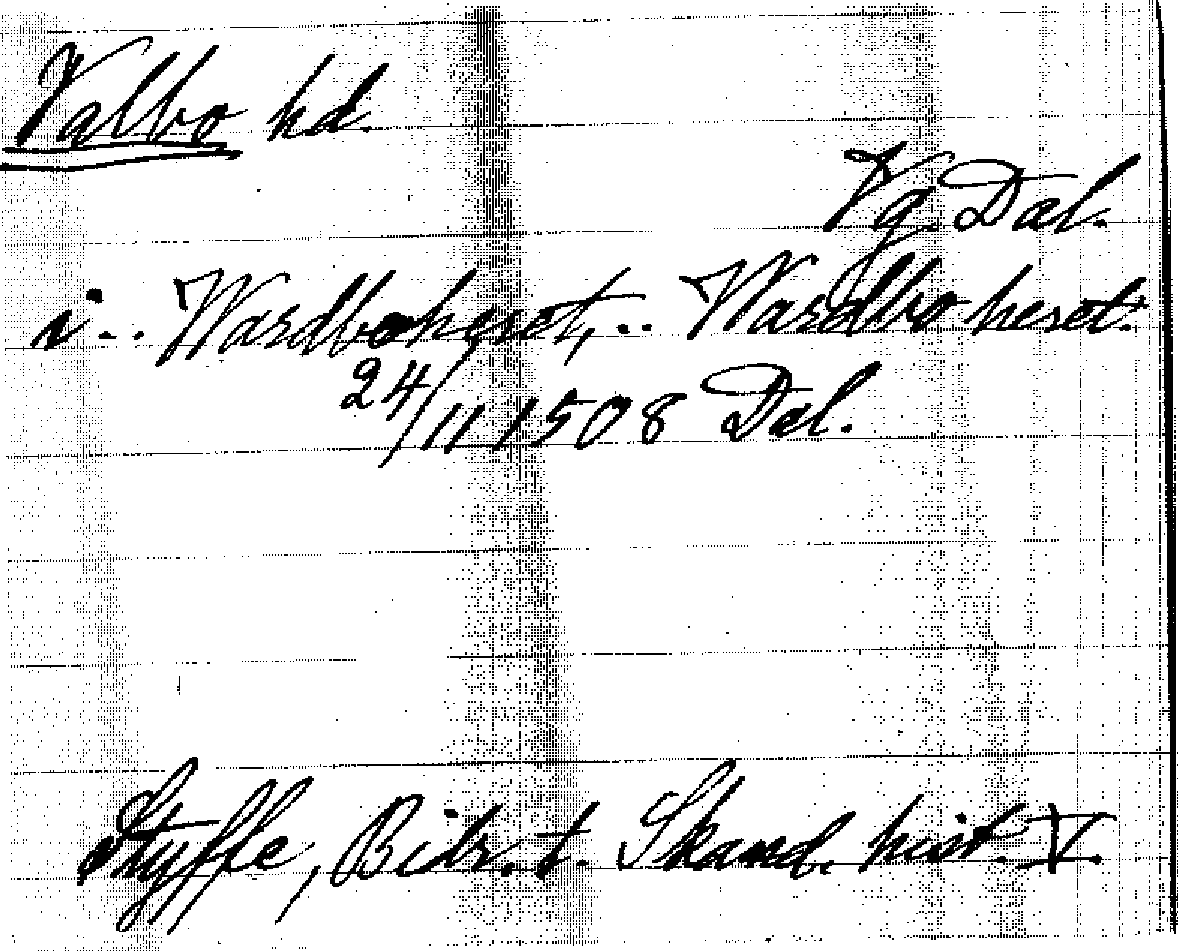 Valbo hd.
Vg. Dal.
i.. Wardboheret, .. Wardbo heret.
24/11 1508 Dal.
Styffe, Bidr. t. Skand. hist. V.